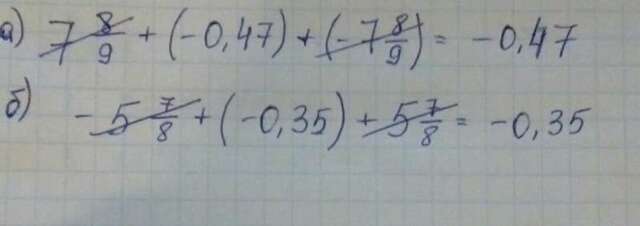 а) 7 8/9 + (-0,47) + (-7 8/9) = -0,47
б) -5 7/8 + (-0,35) + 5 7/8 = -0,35